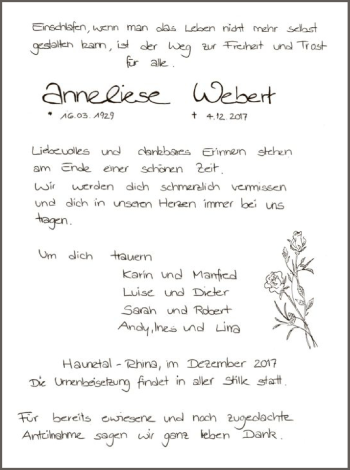 Einschlafen, wenn man das Leben nicht mehr selbst
gestalten kann, ist der Weg zur Freiheit und Trost
für alle.
Anneliese Webert
* 16.03.1929 † 4.12.2017
Liebevolles und dankbares Erinnern stehen
am Ende einer schönen Zeit.
Wir werden dich schmerzlich vermissen
und dich in unseren Herzen immer bei uns
tragen.
Um dich trauern
Karin und Manfred
Luise und Dieter
Sarah und Robert
Andy, Ines und Lina
Haunetal - Rhina, im Dezember 2017
Die Urnenbeisetzung findet in aller Stille statt.
Für bereits erwiesene und noch zugedachte
Anteilnahme sagen wir ganz lieben Dank.